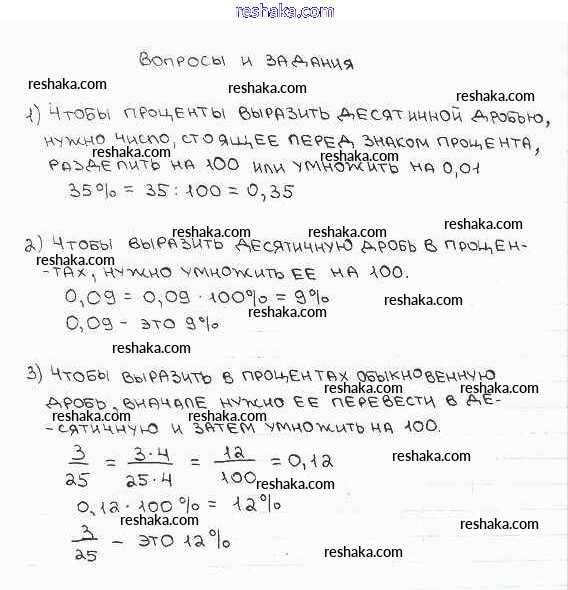 reshaka.com
ВОПРОСЫ И ЗАДАНИЯ
reshaka.com
reshaka.com
reshaka.com
1) ЧТОБЫ ПРОЦЕНТЫ ВЫРАЗИТЬ ДЕСЯТИЧНОЙ ДРОБЬЮ,
НУЖНО ЧИСЛО, СТОЯЩЕЕ ПЕРЕД ЗНАКОМ ПРОЦЕНТА,
reshaka.com
reshaka.com
РАЗДЕЛИТЬ НА 100 ИЛИ УМНОЖИТЬ НА 0,01
35% = 35 : 100 = 0,35
reshaka.com
reshaka.com
reshaka.com
2) ЧТОБЫ ВЫРАЗИТЬ ДЕСЯТИЧНУЮ ДРОБЬ В ПРОЦЕН-
reshaka.com
-ТАХ, НУЖНО УМНОЖИТЬ ЕЕ НА 100.
0,09 = 0,09 · 100% = 9%
reshaka.com
reshaka.com
0,09 - ЭТО 9%
reshaka.com
3) ЧТОБЫ ВЫРАЗИТЬ В ПРОЦЕНТАХ ОБЫКНОВЕННУЮ
reshaka.com
ДРОБЬ, ВНАЧАЛЕ НУЖНО ЕЕ ПЕРЕВЕСТИ В ДЕ-
reshaka.com
reshaka.com
reshaka.com
-СЯТИЧНУЮ И ЗАТЕМ УМНОЖИТЬ НА 100.
3/25 = 3·4/25·4 = 12/100 = 0,12
reshaka.com
reshaka.com
0,12 · 100% = 12%
reshaka.com
reshaka.com
3/25 - ЭТО 12%
reshaka.com